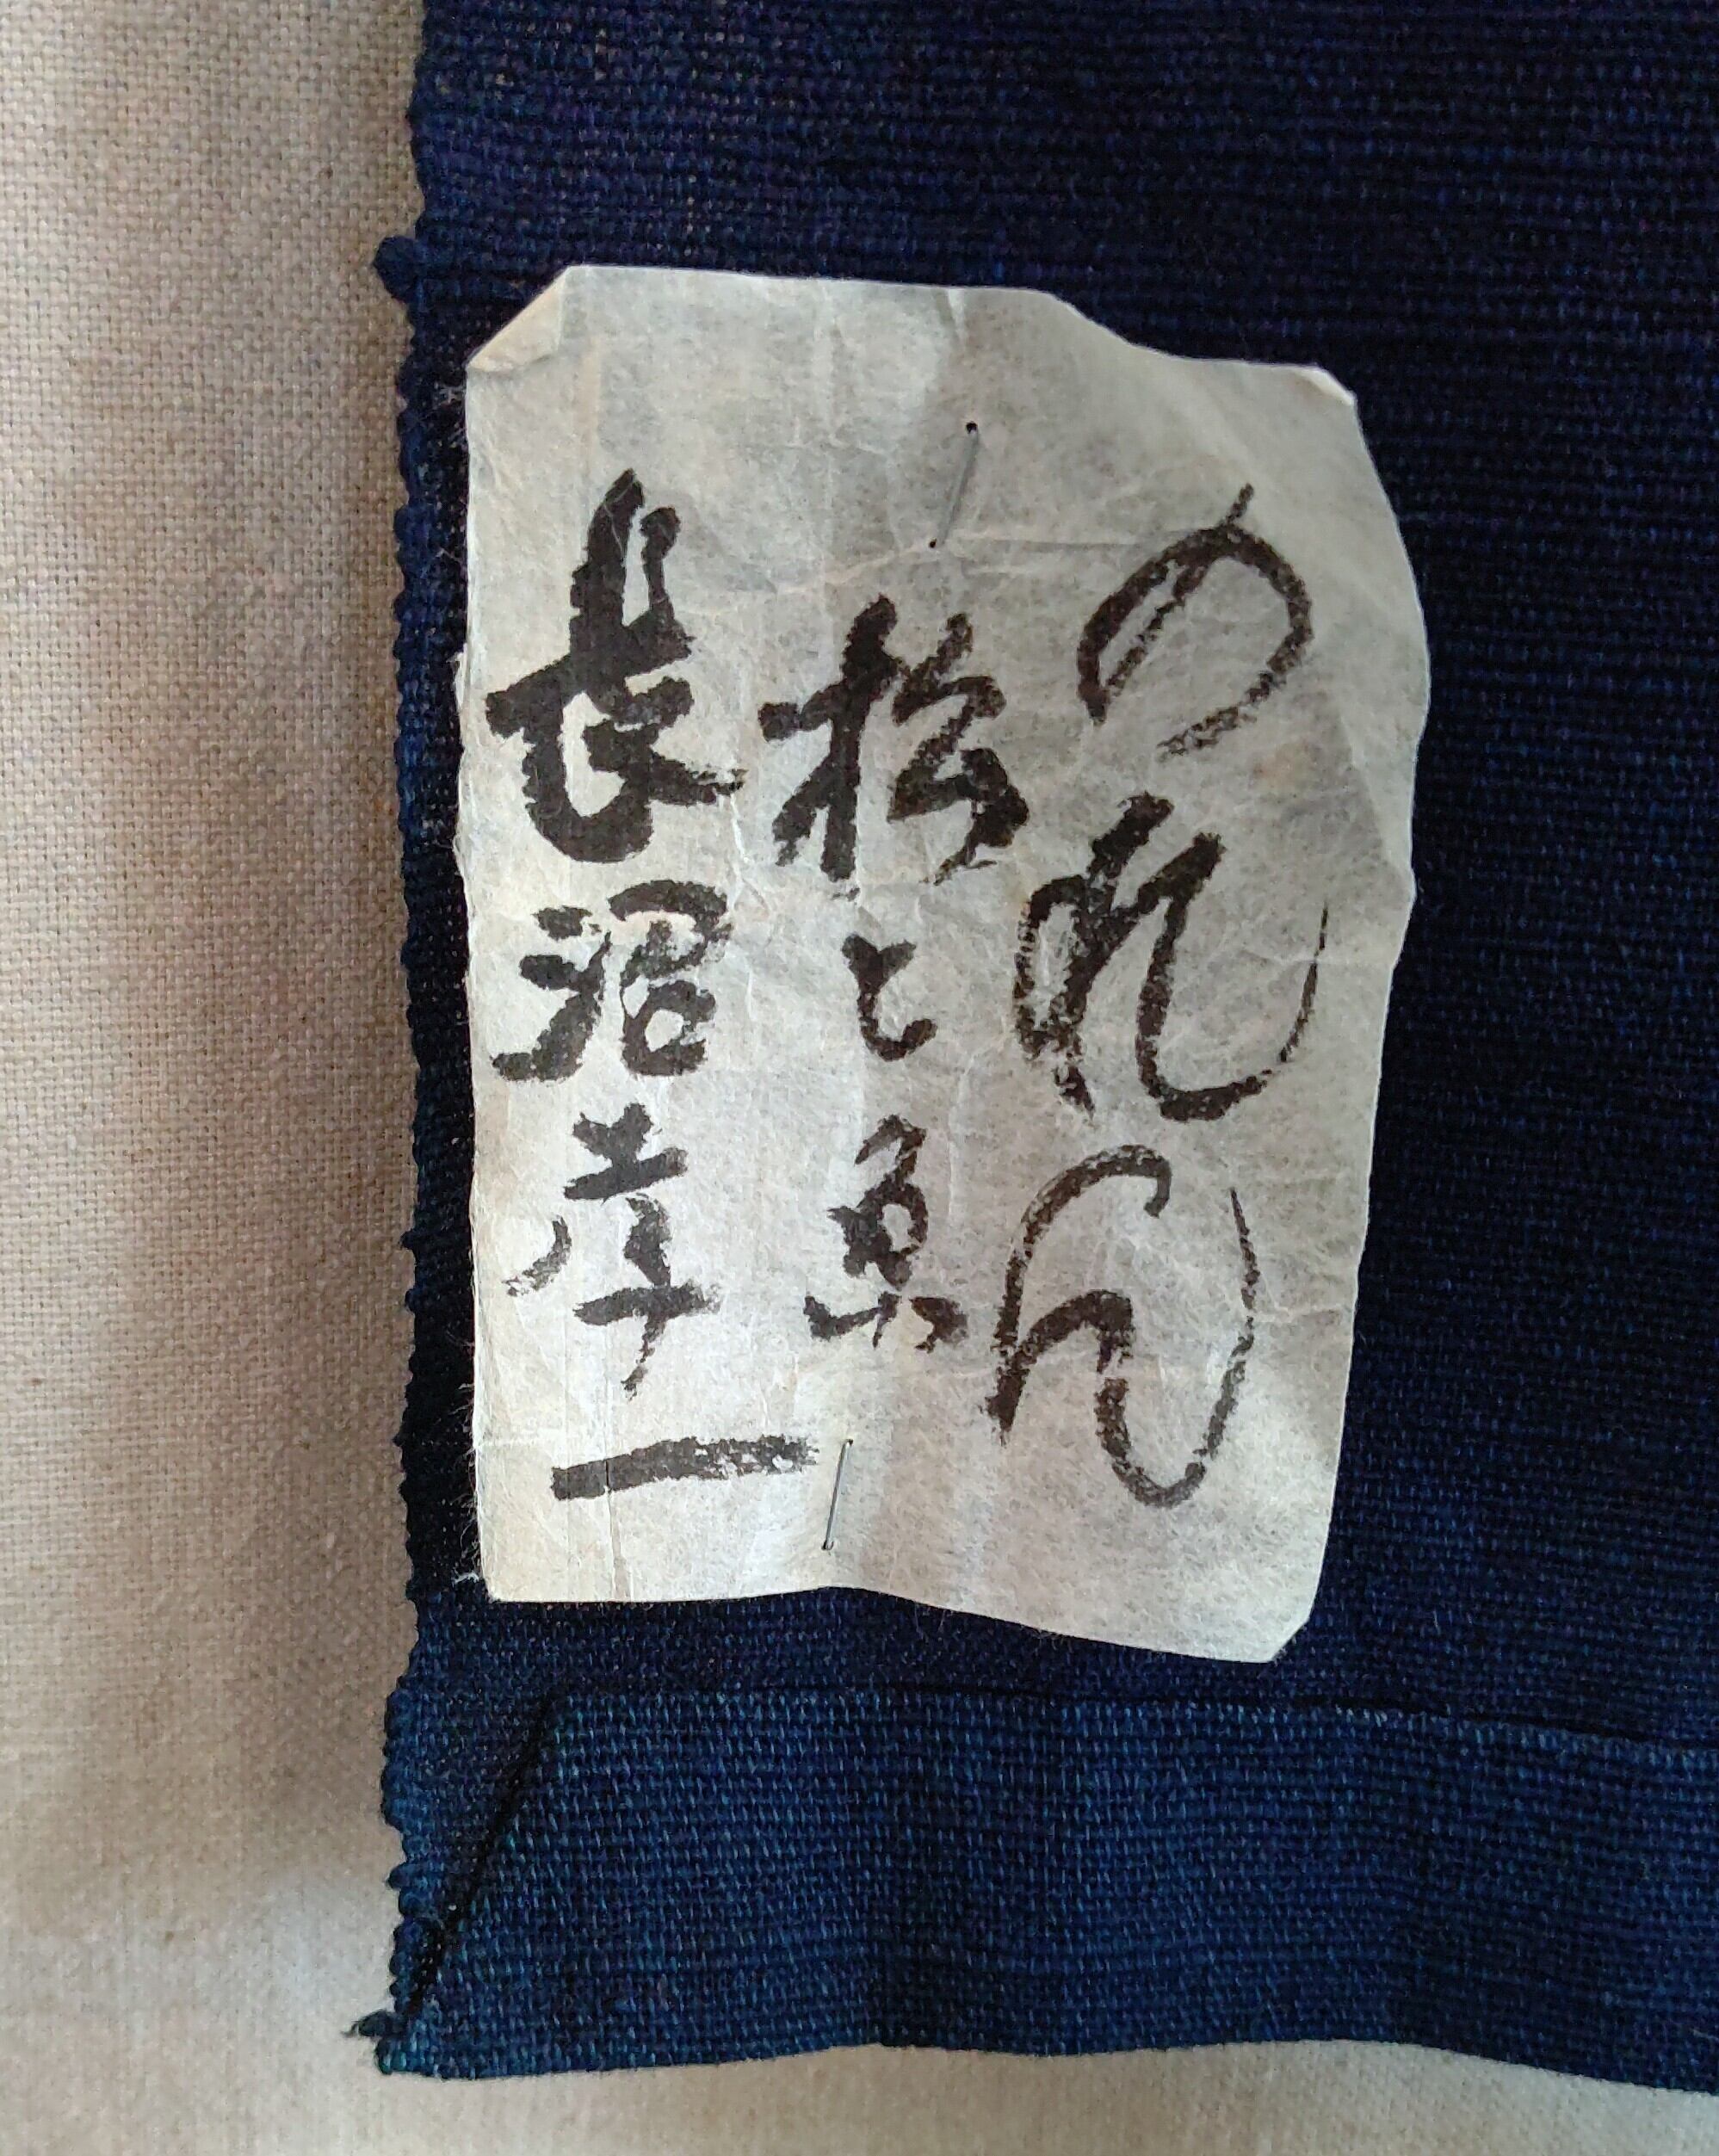 のれん
松と魚
長沼孝一